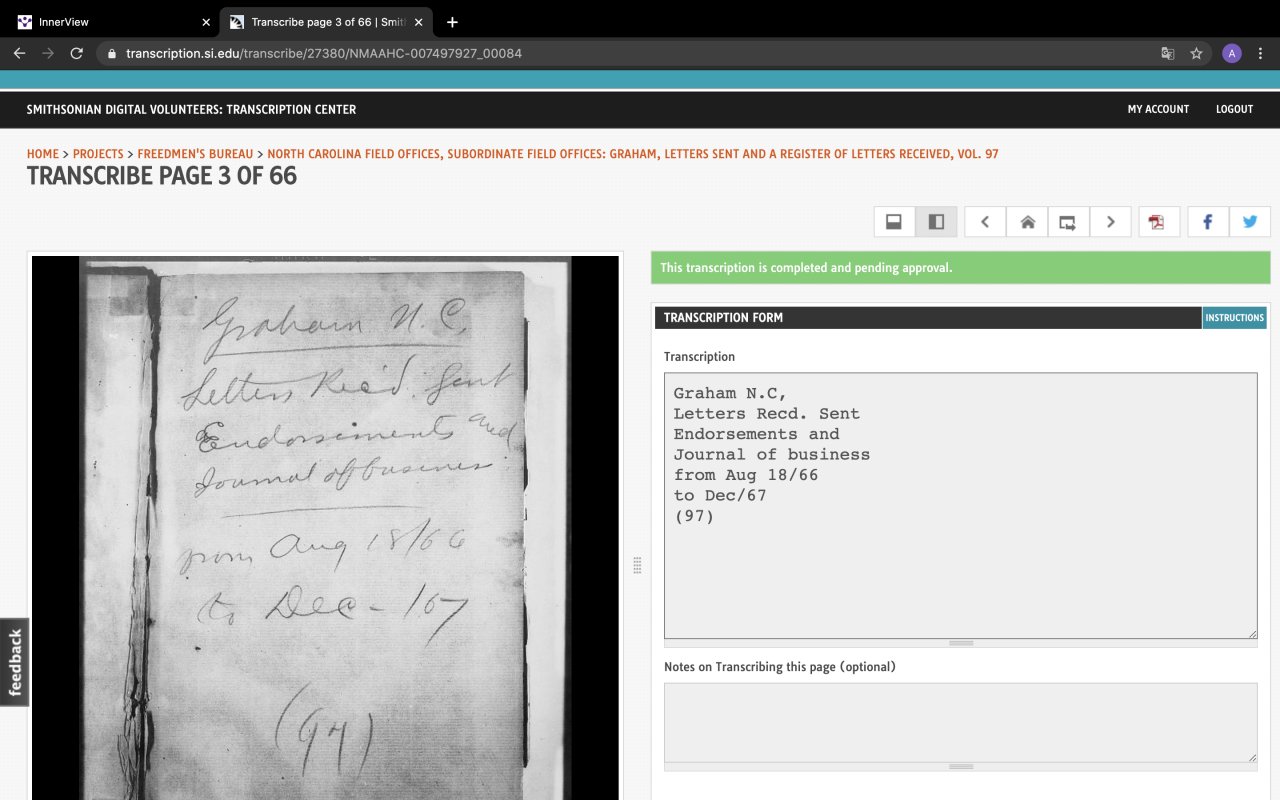 InnerView
Transcribe page 3 of 66 | Smit
transcription.si.edu/transcribe/27380/NMAAHC-007497927_00084
A
SMITHSONIAN DIGITAL VOLUNTEERS: TRANSCRIPTION CENTER
MY ACCOUNT
LOGOUT
HOME > PROJECTS > FREEDMEN'S BUREAU > NORTH CAROLINA FIELD OFFICES, SUBORDINATE FIELD OFFICES: GRAHAM, LETTERS SENT AND A REGISTER OF LETTERS RECEIVED, VOL. 97
TRANSCRIBE PAGE 3 OF 66
Graham N.C,
Letters Rec'd. Sent
Endorsements and
Journal of busines
from Aug 18/66
to Dec - /67
(97)
feedback
This transcription is completed and pending approval.
TRANSCRIPTION FORM
INSTRUCTIONS
Transcription
Graham N.C,
Letters Recd. Sent
Endorsements and
Journal of business
from Aug 18/66
to Dec/67
(97)
Notes on Transcribing this page (optional)